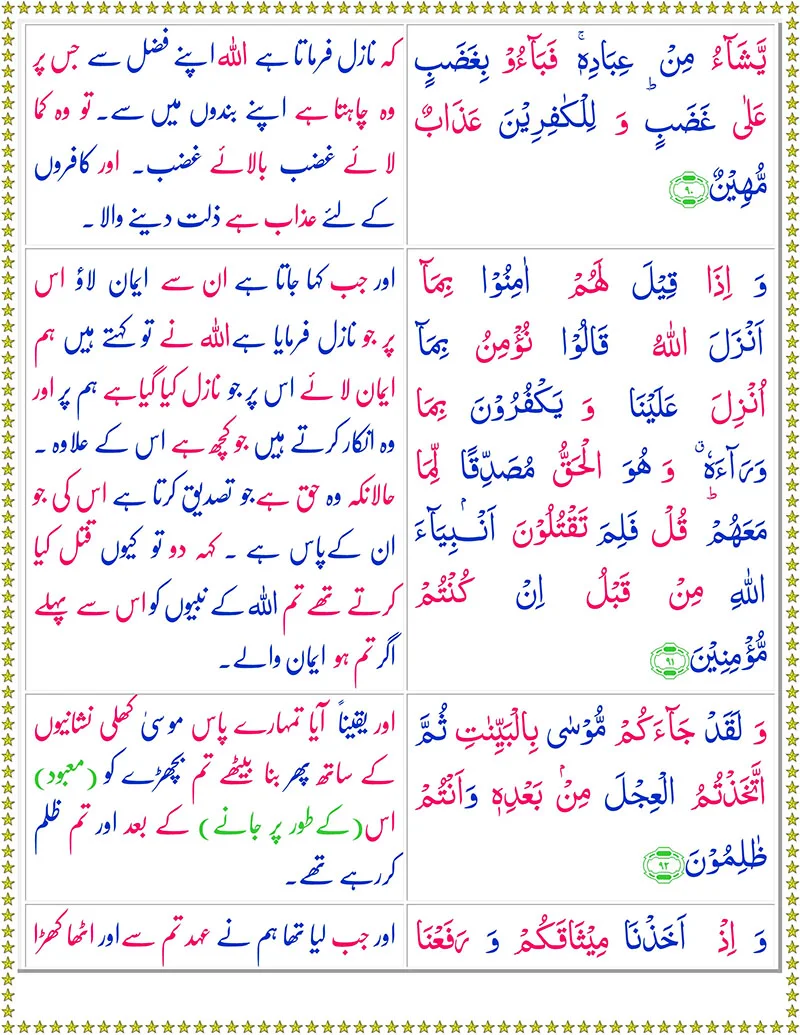 يَّشَآءُ مِنْ عِبَادِهٖ ۚ فَبَآءُوْ بِغَضَبٍ
عَلٰى غَضَبٍ ؕ وَ لِلْكٰفِرِيْنَ عَذَابٌ
مُّهِيْنٌ ﴿۹۰﴾
کہ نازل فرماتا ہے اللہ اپنے فضل سے جس پر
وہ چاہتا ہے اپنے بندوں میں سے۔ تو وہ کما
لائے غضب بالائے غضب۔ اور کافروں
کے لئے عذاب ہے ذلت دینے والا ۔
وَ اِذَا قِيْلَ لَهُمْ اٰمِنُوْا بِمَآ
اَنْزَلَ اللّٰهُ قَالُوْا نُؤْمِنُ بِمَآ
اُنْزِلَ عَلَيْنَا وَ يَكْفُرُوْنَ بِمَا
وَرَآءَهٗ ۗ وَ هُوَ الْحَقُّ مُصَدِّقًا لِّمَا
مَعَهُمْ ؕ قُلْ فَلِمَ تَقْتُلُوْنَ اَنْۢبِيَآءَ
اللّٰهِ مِنْ قَبْلُ اِنْ كُنْتُمْ
مُّؤْمِنِيْنَ ﴿۹۱﴾
اور جب کہا جاتا ہے ان سے ایمان لاؤ اس
پر جو نازل فرمایا ہے اللہ نے تو کہتے ہیں ہم
ایمان لائے اس پر جو نازل کیا گیا ہے ہم پر اور
وہ انکار کرتے ہیں جو کچھ ہے اس کے علاوہ ۔
حالانکہ وہ حق ہے جو تصدیق کرتا ہے اس کی جو
ان کے پاس ہے ۔ کہہ دو تو کیوں قتل کیا
کرتے تھے تم اللہ کے نبیوں کو اس سے پہلے
اگر تم ہو ایمان والے ۔
وَ لَقَدْ جَآءَكُمْ مُّوْسٰى بِالْبَيِّنٰتِ ثُمَّ
اتَّخَذْتُمُ الْعِجْلَ مِنْۢ بَعْدِهٖ وَاَنْتُمْ
ظٰلِمُوْنَ ﴿۹۲﴾
اور یقیناً آیا تمہارے پاس موسیٰ کھلی نشانیوں
کے ساتھ پھر بنا بیٹھے تم بچھڑے کو (معبود)
اس (کے طور پر جانے) کے بعد اور تم ظلم
کر رہے تھے۔
وَ اِذْ اَخَذْنَا مِيْثَاقَكُمْ وَ رَفَعْنَا
اور جب لیا تھا ہم نے عہد تم سے اور اٹھا کھڑا